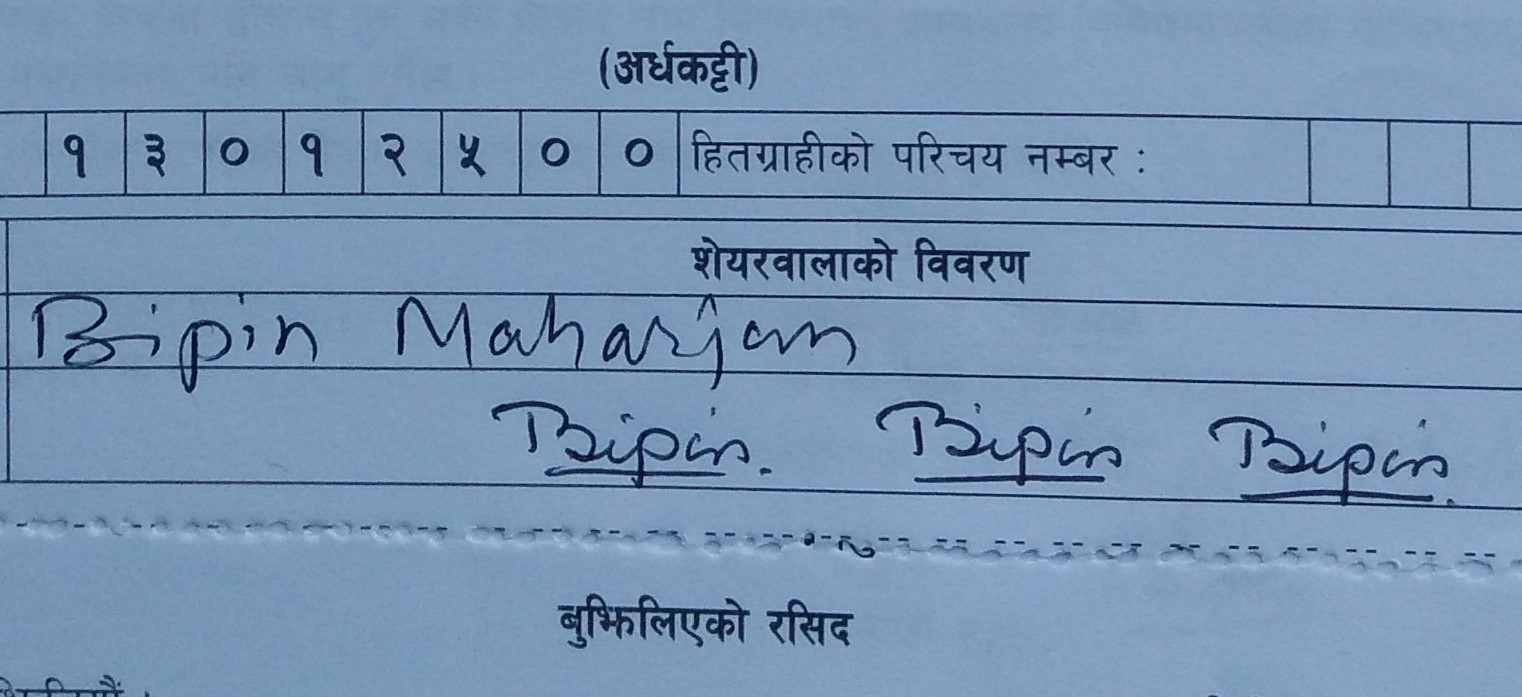 (अर्धकट्टी)
१ ३ ० १ २ ५ ० ० हितग्राहीको परिचय नम्बर :
शेयरवालाको विवरण
Bipin Maharjan
Bipin. Bipin Bipin.
बुझिलिएको रसिद